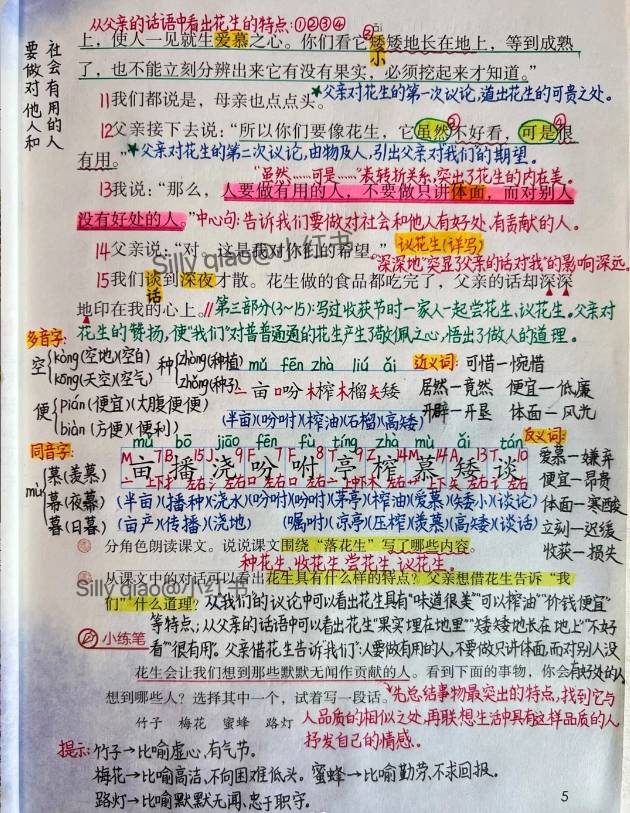 从父亲的话语中看出花生的特点:①②③④
社会有用的人
要做对他人和
上，使人一见就生爱慕之心。你们看它矮矮地长在地上，等到成熟
ǎi
小
了，也不能立刻分辨出来它有没有果实，必须挖起来才知道。”
11我们都说是，母亲也点点头。
★父亲对花生的第一次议论,道出花生的可贵之处。
12父亲接下去说：“所以你们要像花生，它虽然不好看，可是很
有用。”
★父亲对花生的第二次议论,由物及人,引出父亲对我们的期望。
“虽然……可是……”表转折关系,突出了花生的内在美。
13我说：“那么，人要做有用的人，不要做只讲体面，而对别人
没有好处的人。”
中心句:告诉我们要做对社会和他人有好处、有贡献的人。
14父亲说：“对。这是我对你们的希望。”
议花生(详写)
Silly qiao@小红书
“深深地”突显了父亲的话对“我”的影响深远。
15我们谈到深夜才散。花生做的食品都吃完了，父亲的话却深深
话
地印在我的心上。
//第三部分(3~15):写过收获节时一家人一起尝花生、议花生。父亲对
花生的赞扬,使“我们”对普普通通的花生产生了敬佩之心,悟出了做人的道理。
多音字:
空{kòng(空地)(空白)
kōng(天空)(空气)
种{zhòng(种植)
zhǒng(种子)
便{pián(便宜)(大腹便便)
biàn(方便)(便利)
mǔ fēn zhà liú ǎi
亩吩榨榴矮
(半亩)(吩咐)(榨油)(石榴)(高矮)
近义词: 可惜—惋惜
居然—竟然 便宜—低廉
开辟—开垦 体面—风光
同音字:
mù{慕(羡慕)
幕(夜幕)
暮(日暮)
mǔ bō jiāo fēn fù tíng zhà mù ǎi tán
亩播浇吩咐亭榨慕矮谈
(半亩)(播种)(浇水)(吩咐)(吩咐)(茅亭)(榨油)(爱慕)(矮小)(谈论)
(亩产)(传播)(浇地) (嘱咐)(凉亭)(压榨)(羡慕)(高矮)(谈话)
反义词:
爱慕—嫌弃
便宜—昂贵
体面—寒酸
立刻—迟缓
收获—损失
分角色朗读课文。说说课文围绕“落花生”写了哪些内容。
种花生、收花生、尝花生、议花生。
从课文中的对话可以看出花生具有什么样的特点？父亲想借花生告诉“我
Silly qiao@小红书
们”什么道理？
从“我们”的议论中可以看出花生具有“味道很美”“可以榨油”“价钱便宜”
等特点;从父亲的话语中可以看出花生“果实埋在地里”“矮矮地长在地上”“不好
小练笔
看”“很有用”。父亲借花生告诉我们:人要做有用的人,不要做只讲体面,而对别人没
有好处的人
花生会让我们想到那些默默无闻作贡献的人。看到下面的事物，你会
想到哪些人？选择其中一个，试着写一段话。
先总结事物最突出的特点,找到它与
竹子 梅花 蜜蜂 路灯
人品质的相似之处,再联想生活中具有这样品质的人,
抒发自己的情感。
提示:竹子→比喻虚心、有气节。
梅花→比喻高洁、不向困难低头。 蜜蜂→比喻勤劳、不求回报。
路灯→比喻默默无闻、忠于职守。
5